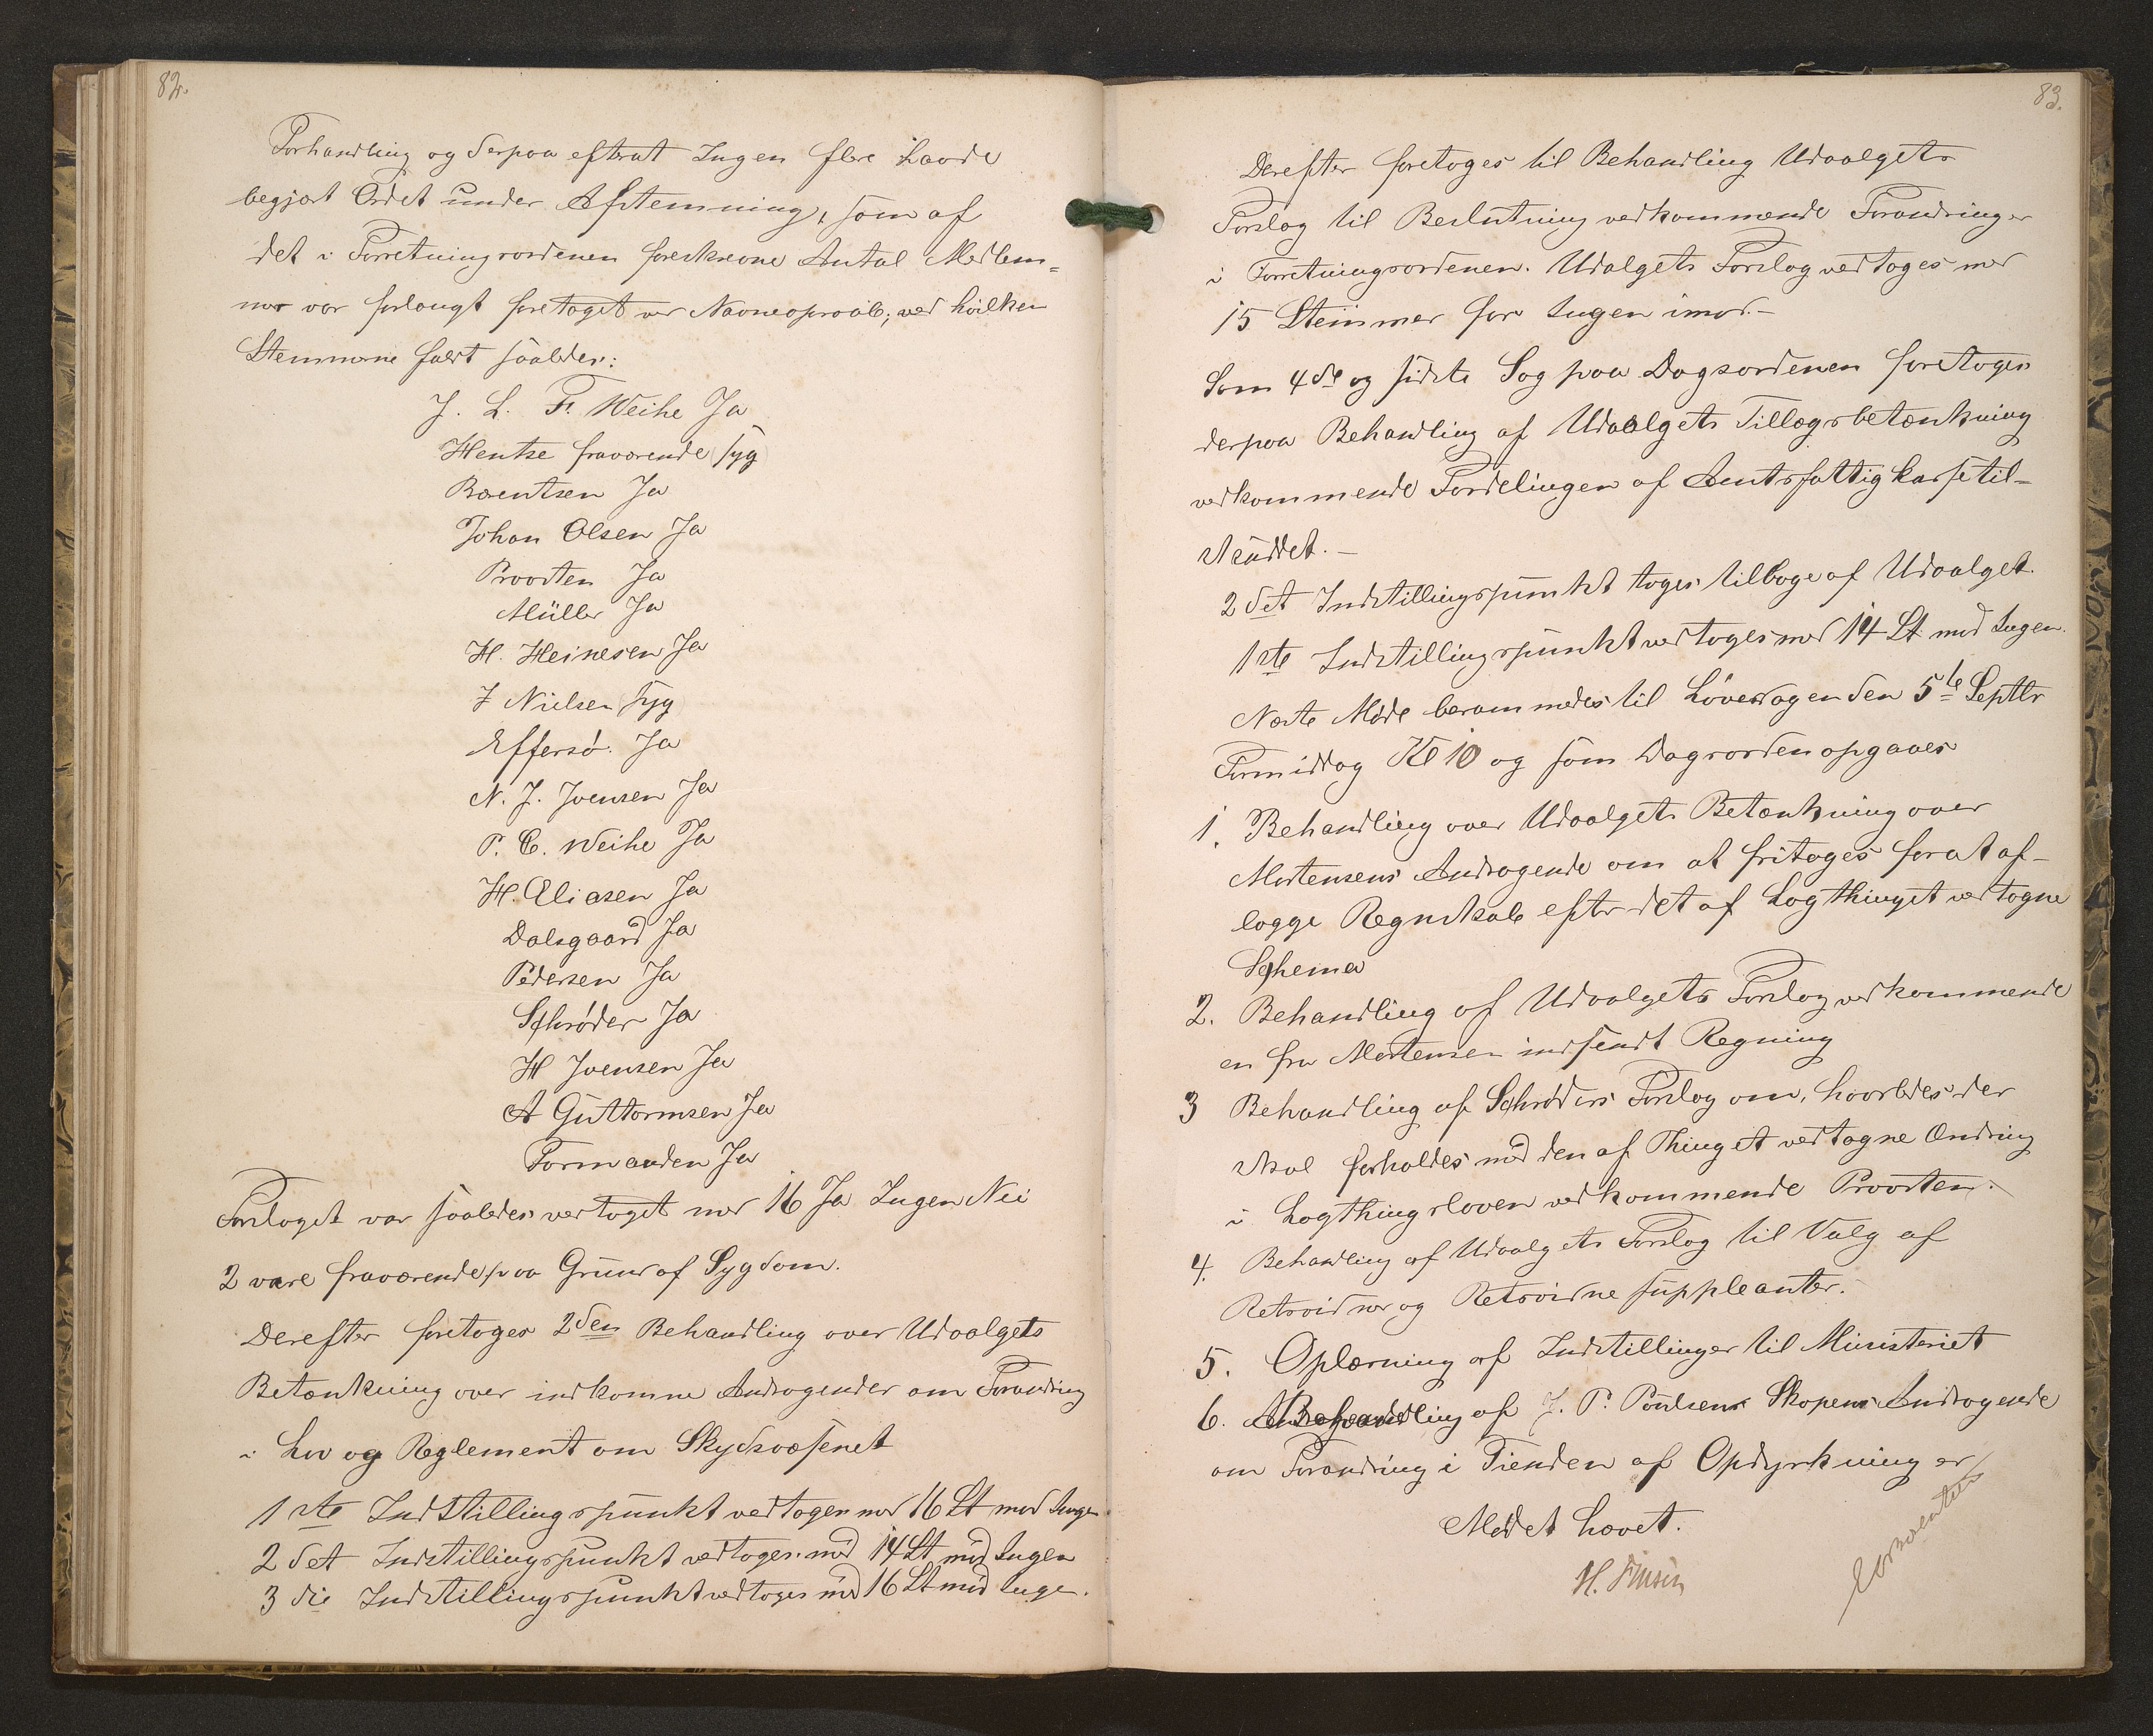 82.
Forhandling og derpaa efterat Ingen flere havde
begjært Ordet under Afstemning, som af
det i Forretningsordenen foreskrevne Antal Medlem=
mer var forlangt foretaget ved Navneopraab; ved hvilken
Stemmerne faldt saaledes:
J. L. F. Weihe Ja
Hentze fraværende syg
Bærentsen Ja
Johan Olsen Ja
Provsten Ja
Müller Ja
H. Heinesen Ja
J Nielsen syg
Effersø. Ja
N. J. Joensen Ja
P. C. Weihe Ja
H. Eliasen Ja
Dalsgaard Ja
Pedersen Ja
Schrøder Ja
H Joensen Ja
A Guttormsen Ja
Formanden Ja
Forslaget var saaledes vedtaget med 16 Ja Ingen Nei
2 vare fraværende paa Grund af Sygdom.
Derefter foretoges 2den Behandling over Udvalgets
Betænkning over indkomne Andragender om Forandring
i Lov og Reglement om Skydsvæsenet
1ste Indstillingspunkt vedtoges med 16 St mod Ingen
2det Indstillingspunkt vedtoges med 14 St mod Ingen
3die Indstillingspunkt vedtoges med 16 St mod Inge.
83.
Derefter foretoges til Behandling Udvalgets
Forslag til Beslutning vedkommende Forandringer
i Forretningsordenen. Udalgets Forslag vedtoges med
15 Stemmer for Ingen imod.-
Som 4de og sidste Sag paa Dagsordenen foretoges
derpaa Behandling af Udvalgets Tillægsbetænkning
vedkommende Fordelingen af Amtsfattigkassetil-
skuddet.-
2det Indstillingspunkt toges tilbage af Udvalget.
1ste Indstillingspunkt vedtoges med 14 St mod Ingen.
Næste Møde berammedes til Løverdagen den 5te Septbr
Formiddag Kl 10 og som Dagsorden opgaves
1. Behandling over Udvalgets Betænkning over
Mortensens Andragende om at fritages for at af-
lægge Regnskab efter det af Lagthinget vedtagne
Schema
2. Behandling af Udvalgets Forslag vedkommende
en fra Mortensen indsendt Regning
3 Behandling af Schrøders Forslag om, hvorledes der
skal forholdes med den af Thinget vedtagne Ændring
i Lagthingsloven vedkommende Provsten.
4. Behandling af Udvalgets Forslag til Valg af
Retsvidner og Retsvidnesuppleanter.
5. Oplæsning af Indstillinger til Ministeriet
6. Behandling af J. P. Poulsens Skopens Andragende
om Forandring i Tienden af Opdyrkninger
Mødet hævet.
H. Finsen